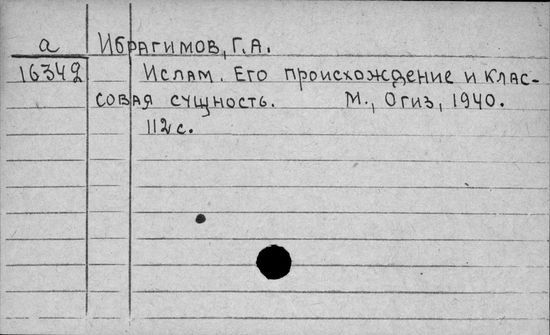 а ИБРАГИМОВ, Г.А.
16342 Ислам. Его происхождение и клас-
совая сущность. М., Огиз, 1940.
112 с.